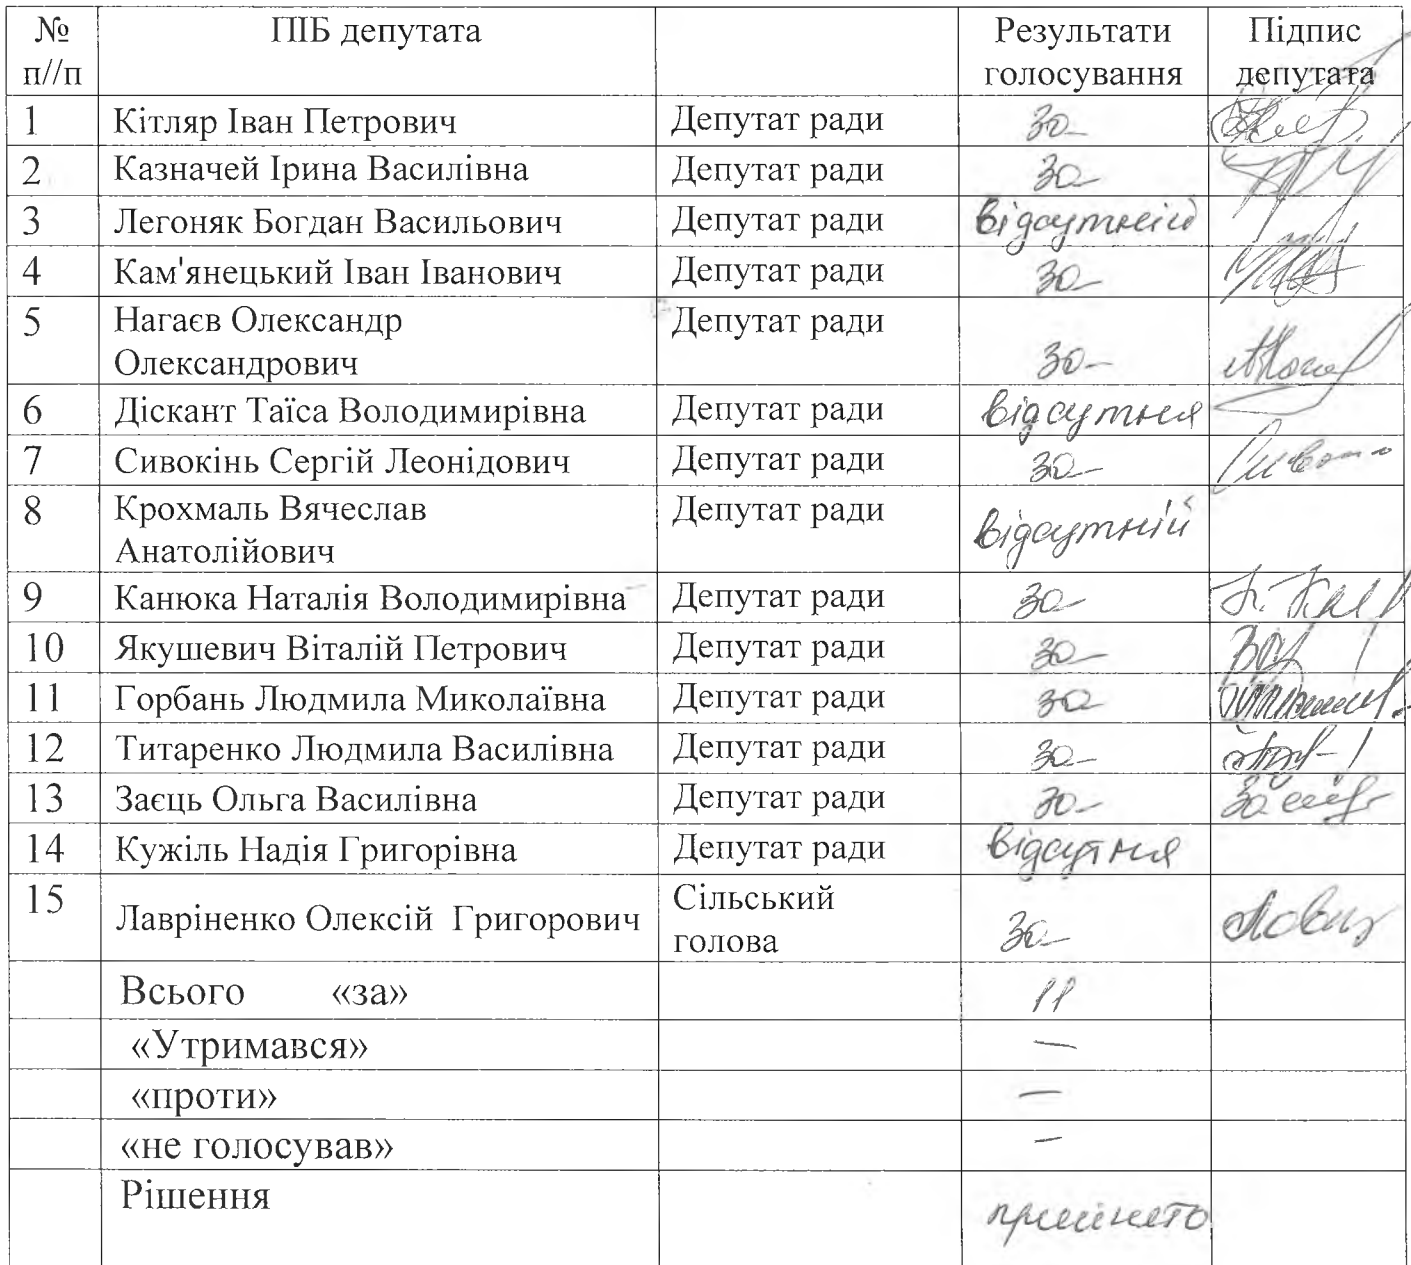 № ПІБ депутата Результати Підпис
п//п голосування депутата
1 Кітляр Іван Петрович Депутат ради за
2 Казначей Ірина Василівна Депутат ради за
3 Легоняк Богдан Васильович Депутат ради відсутній
4 Кам'янецький Іван Іванович Депутат ради за
5 Нагаєв Олександр Депутат ради
Олександрович за
6 Діскант Таїса Володимирівна Депутат ради відсутня
7 Сивокінь Сергій Леонідович Депутат ради за
8 Крохмаль Вячеслав Депутат ради відсутній
Анатолійович
9 Канюка Наталія Володимирівна Депутат ради за
10 Якушевич Віталій Петрович Депутат ради за
11 Горбань Людмила Миколаївна Депутат ради за
12 Титаренко Людмила Василівна Депутат ради за
13 Заєць Ольга Василівна Депутат ради за
14 Кужіль Надія Григорівна Депутат ради відсутня
15 Лавріненко Олексій Григорович Сільський
голова за
Всього «за» 11
«Утримався» —
«проти» —
«не голосував» –
Рішення прийнято